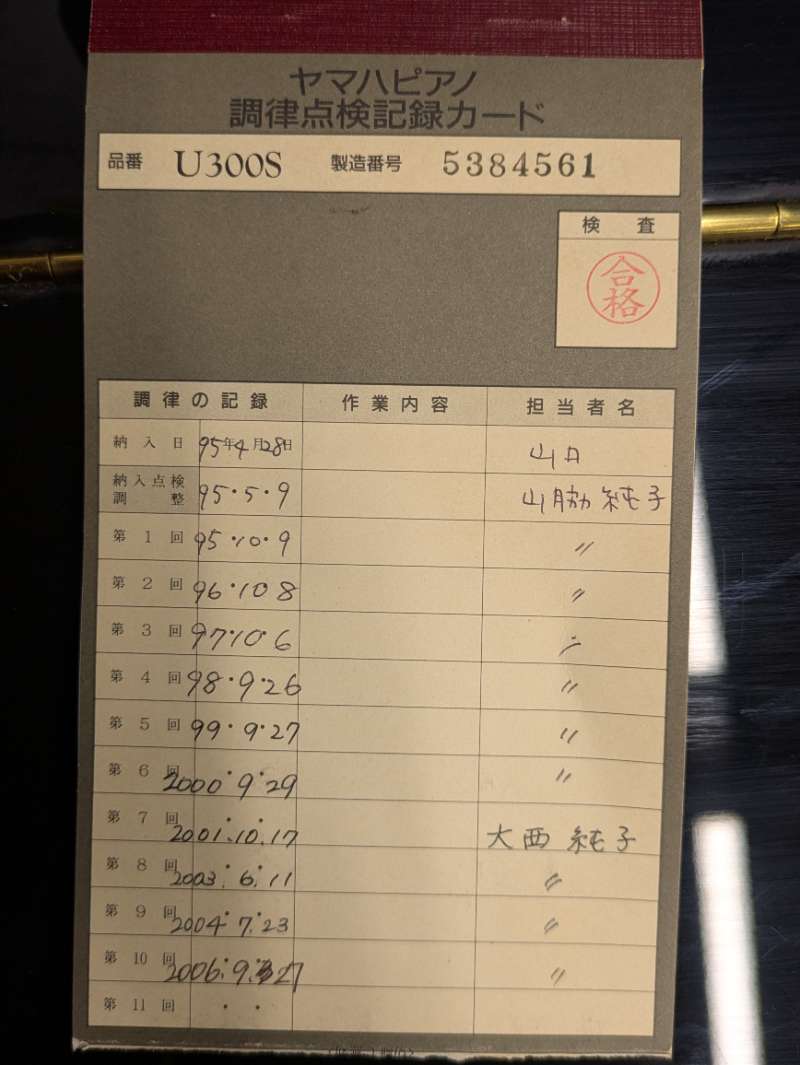 ヤマハピアノ
調律点検記録カード
品番 U300S 製造番号 5384561
検査
合格
調律の記録 作業内容 担当者名
納入日 95年4月28日 山口
納入点検調整 95・5・9 山脇 純子
第1回 95・10・9 〃
第2回 96・10・8 〃
第3回 97・10・6 〃
第4回 98・9・26 〃
第5回 99・9・27 〃
第6回 2000・9・29 〃
第7回 2001.10.17 大西 純子
第8回 2003.6.11 〃
第9回 2004.7.23 〃
第10回 2006.9.27 〃
第11回 ・ ・